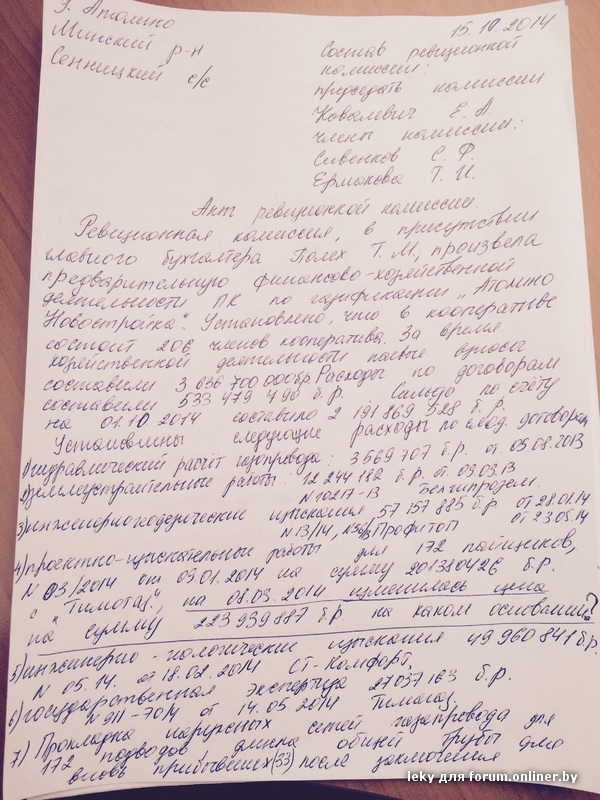 г. Атолино
Минский р-н
Сенницкий с/с
15.10.2014
Состав ревиционной
комиссии:
председать комиссии
Ковалевич Е. А.
члены комиссии:
Сивенков С. Ф.
Ермакова Т. И.
Акт ревиционной комиссии.
Ревиционная комиссия, в присутствии
главного бухгалтера Полех Т. М., произвела
предварительную финансово-хозяйственной
деятельности ПК по газификации "Атолино
Новостройка". Установлено, что в кооперативе
состоит 206 членов кооператива. За время
хозяйственной деятельности паевые взносы
составили 3 636 700 000бр. Расходы по договорам
составили 533 479 496 б.р. Сальдо по счёту
на 01.10 2014 составило 2 191 869 528 б. р.
Установлены следующие расходы по договорам
1) гидравлический расчёт газопровода: 3 569 707 б.р. от 05.08.2013
2) землеустроительные работы: 12 244 182 б.р. от 09.09.13
N 10217-13 Белгипрозем.
3) инженерногеодезические изыскания 57 157 885 б.р от 28.01.14
N 13/14, Профитоп от 23.05.14
4) проектно-изыскательные работы для 172 пайщиков,
N 03/2014 от 09.01.2014 на сумму 201380426 б.р.
с "Тимотаз", на 08.09.2014 изменилась цена
на сумму 223 939 887 б.р. на каком основании?
5) инженерно-геологические изыскания 49 960 841 б.р.
N 05.14. от 18.02.2014 СТ-Комфорт,
6) государственная экспертиза 27 037 163 б.р.
N 911-70/4 от 14.05 2014 Тимогаз
7) Прокладка наружных сетей газапровода для
172 подводов, длинна общей трубы для
вновь прибывших (33) после заключения
leky для forum.onliner.by